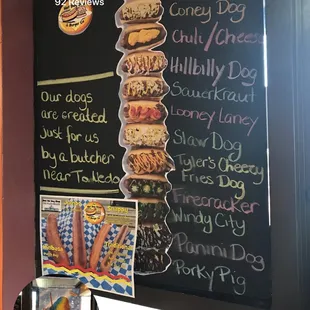 92 Reviews
Coney Dog
Chili/Cheese
Hillbilly Dog
Sauerkraut
Looney Laney
Slaw Dog
Tyler's Cheesy
Fries Dog
Firecracker
Windy City
Panini Dog
Porky Pig
Our dogs
are created
just for us
by a butcher
near Toledo